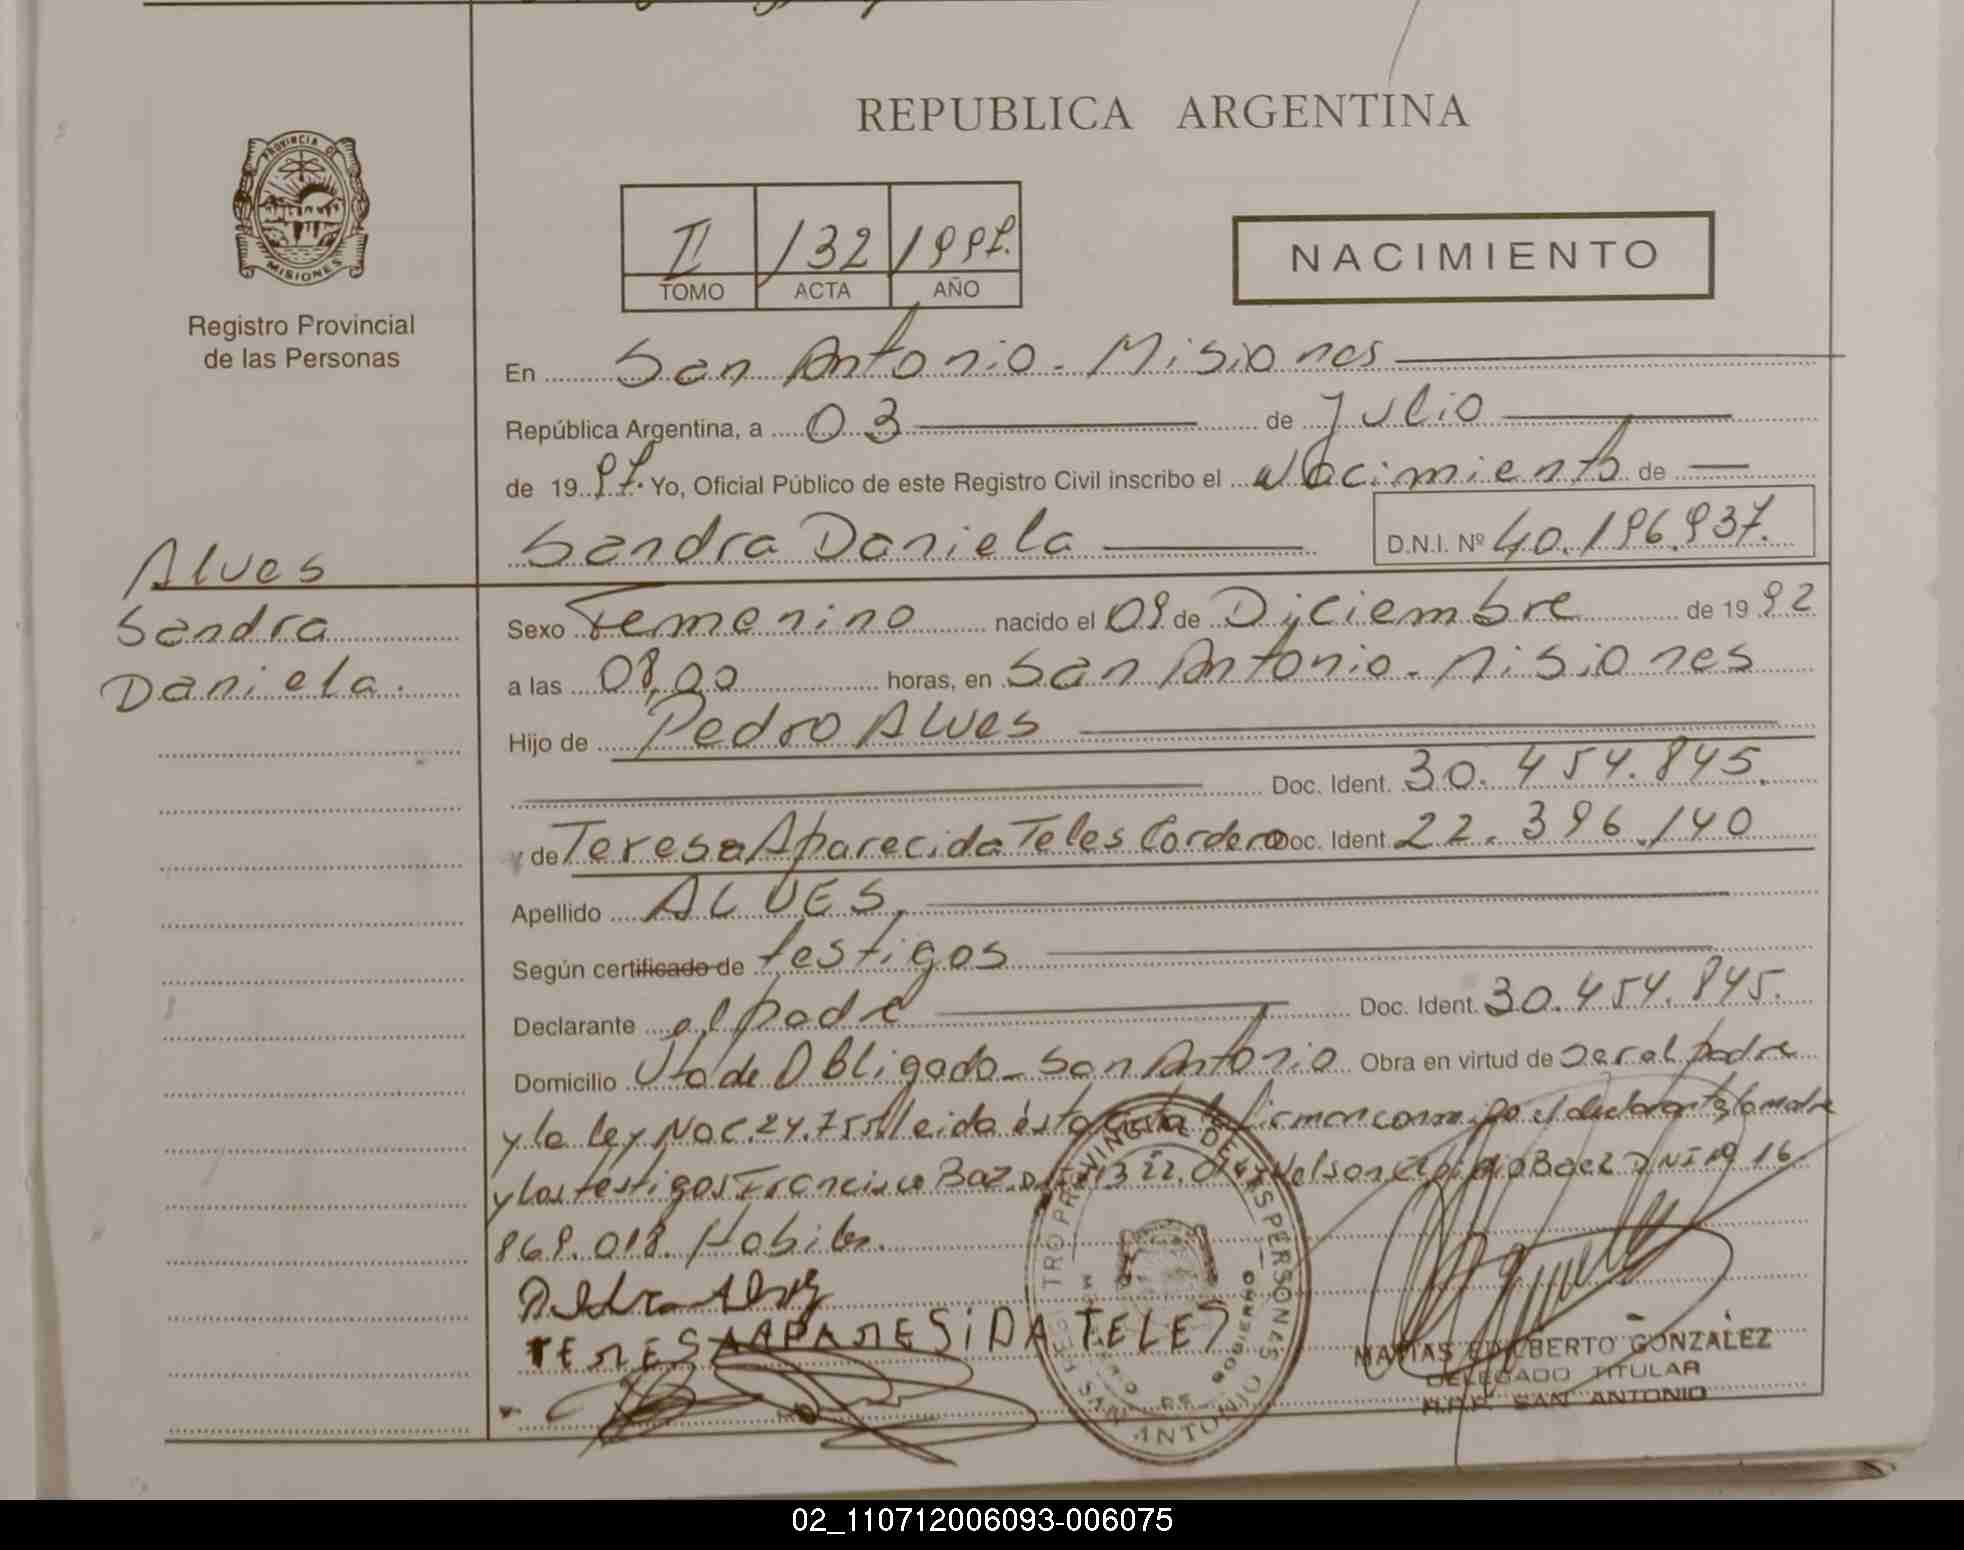 REPUBLICA ARGENTINA
PROVINCIA DE
MISIONES
Registro Provincial
de las Personas
II 132 1997.
TOMO ACTA AÑO
NACIMIENTO
En San Antonio - Misiones
República Argentina, a 03 de Julio
de 1997. Yo, Oficial Público de este Registro Civil inscribo el Nacimiento de
Sandra Daniela D.N.I. Nº 40.196.937.
Alves
Sandra
Daniela.
Sexo Femenino nacido el 09 de Diciembre de 1992
a las 08,00 horas, en San Antonio - Misiones
Hijo de Pedro Alves
Doc. Ident. 30.454.845.
y de Teresa Aparecida Teles Cordero Doc. Ident. 22.396.140
Apellido ALVES
Según certificado de testigos
Declarante el padre Doc. Ident. 30.454.845.
Domicilio Vta de Obligado - San Antonio Obra en virtud de ser el padre
y la ley Nac. 24.755 leida ésta acta la firman conmigo el declarante, la madre
y los testigos Francisco Baz Nelson Baez DNI Nº 16.
869.018. Habiles.
Pedro Alves
TERESA APARESIDA TELES
REGISTRO PROVINCIAL DE LAS PERSONAS
MINISTERIO DE GOBIERNO
SAN ANTONIO
MATIAS EDILBERTO GONZALEZ
DELEGADO TITULAR
R.P.P. SAN ANTONIO
02_110712006093-006075